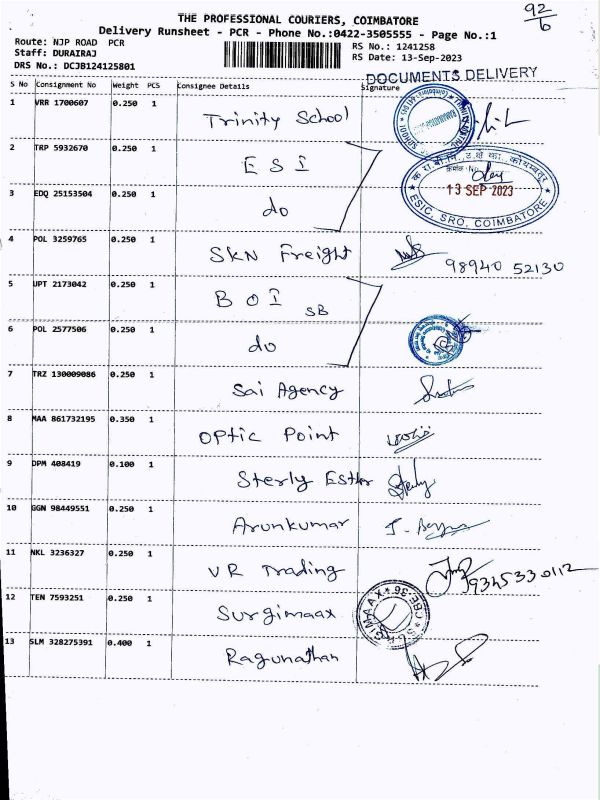 92/6
THE PROFESSIONAL COURIERS, COIMBATORE
Delivery Runsheet - PCR - Phone No.:0422-3505555 - Page No.:1
Route: NJP ROAD PCR
RS No.: 1241258
Staff: DURAIRAJ
RS Date: 13-Sep-2023
DRS No.: DCJB124125801
DOCUMENTS DELIVERY
S No Consignment No Weight PCS Consignee Details Signature
1 VRR 1700607 0.250 1 Trinity School
2 TRP 5932670 0.250 1 E S I
क.रा.बी.नि., उ.क्षे.का., कोयम्बत्तूर
13 SEP 2023
ESIC, SRO, COIMBATORE
3 EDQ 25153504 0.250 1 do
4 POL 3259765 0.250 1 SKN Freight 98940 52130
5 UPT 2173042 0.250 1 B O I SB
6 POL 2577506 0.250 1 do
7 TRZ 130009086 0.250 1 Sai Agency
8 MAA 861732195 0.350 1 Optic Point
9 DPM 408419 0.100 1 Sterly Esther
10 GGN 98449551 0.250 1 Arunkumar
11 NKL 3236327 0.250 1 VR Trading 9345330112
12 TEN 7593251 0.250 1 Surgimaax
CBE-36
13 SLM 328275391 0.400 1 Ragunathan